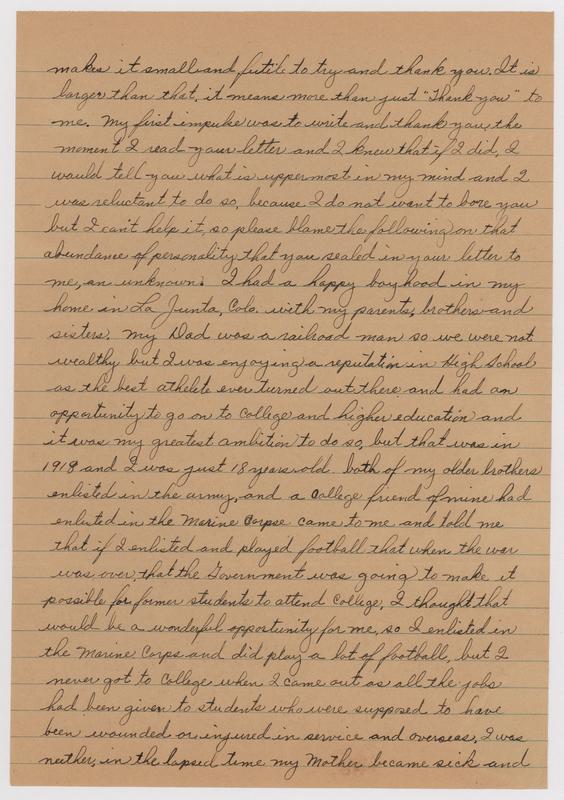 makes it small and futile to try and thank you. It is
larger than that, it means more than just "Thank you" to
me. My first impulse was to write and thank you, the
moment I read your letter and I knew that if I did, I
would tell you what is uppermost in my mind and I
was reluctant to do so, because I do not want to bore you
but I can't help it, so please blame the following on that
abundance of personality that you sealed in your letter to
me, an unknown. I had a happy boyhood in my
home in La Junta, Colo. with my parents, brothers and
sisters. My Dad was a railroad man so we were not
wealthy but I was enjoying a reputation in High School
as the best athelete ever turned out there and had an
opportunity to go on to College and higher education and
it was my greatest ambition to do so, but that was in
1918 and I was just 18 years old. both of my older brothers
enlisted in the army, and a College friend of mine had
enlisted in the Marine Corpse came to me and told me
that if I enlisted and played football that when the war
was over, that the Government was going to make it
possible for former students to attend College, I thought that
would be a wonderful opportunity for me, so I enlisted in
the Marine Corps and did play a lot of football, but I
never got to College when I came out as all the jobs
had been given to students who were supposed to have
been wounded or injured in service and overseas, I was
neither, in the lapsed time my Mother became sick and